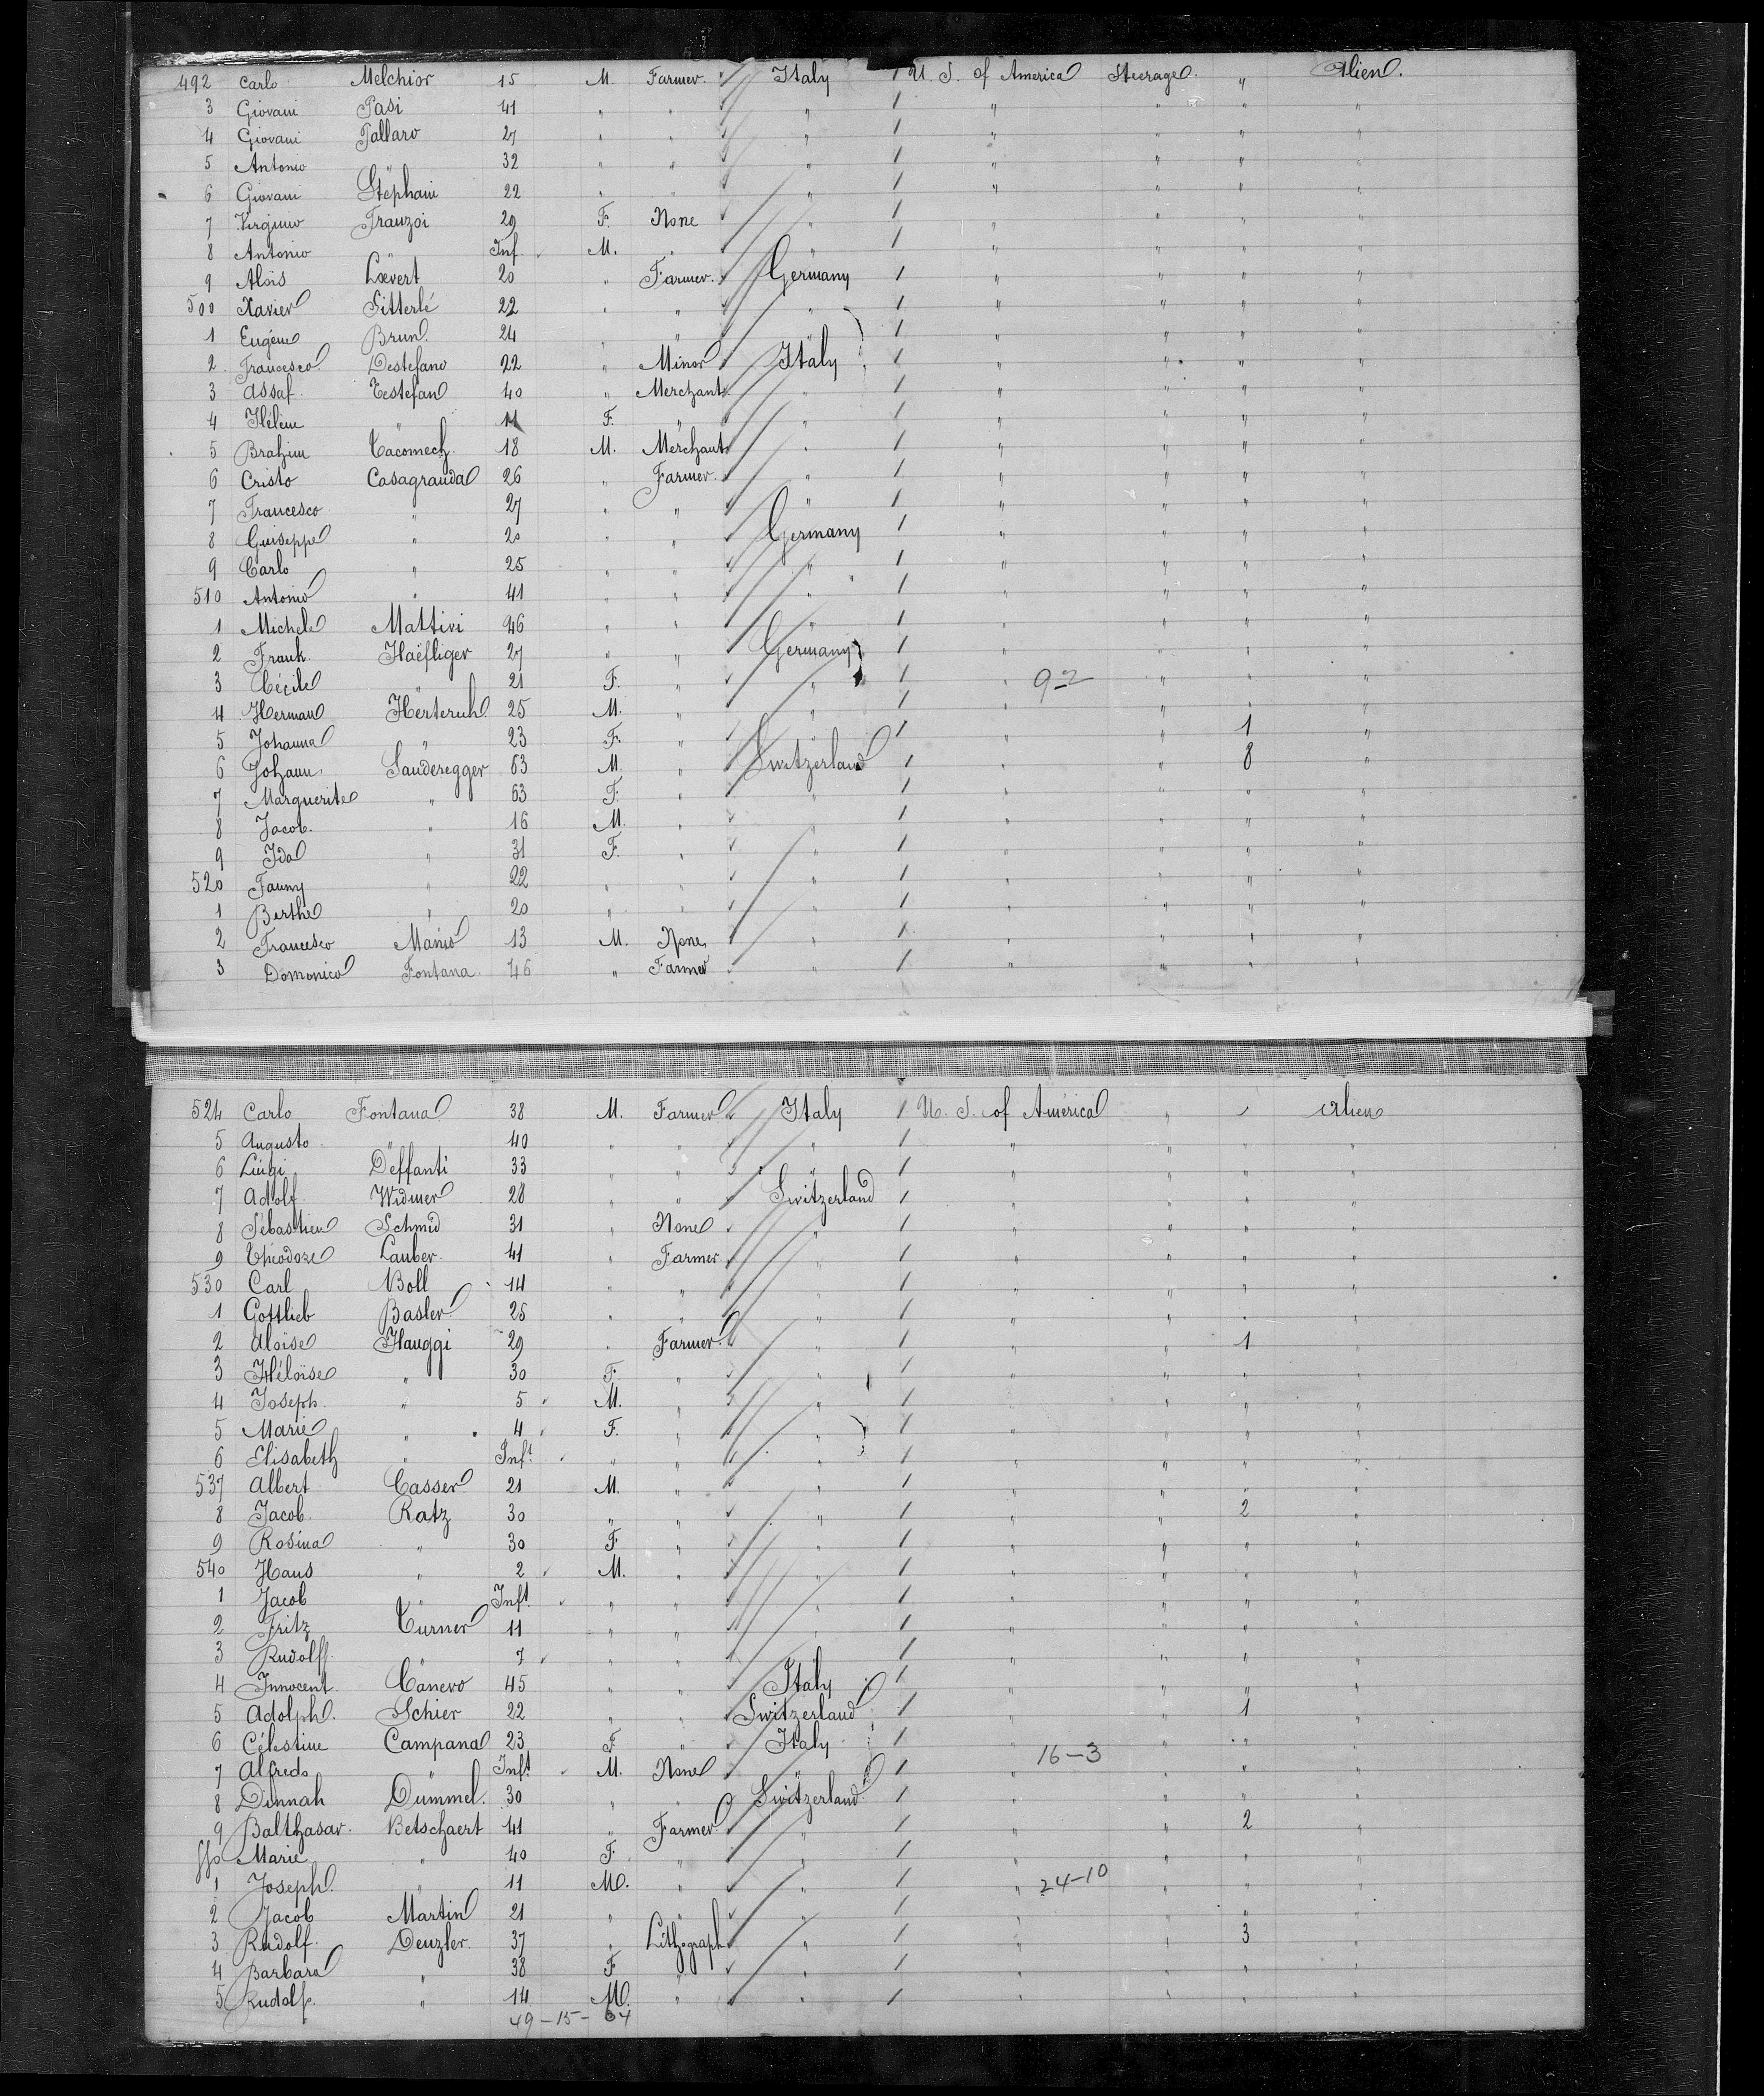 492 Carlo Melchior 15 M. Farmer. Italy / U. S. of America Steerage. " Alien.
3 Giovani Pasi 41 " " " / " " " "
4 Giovani Tallaro 27 " " " / " " " "
5 Antonio " 32 " " " / " " " "
6 Giovani Stéphani 22 " " " / " " " "
7 Virginio Franzoi 29 F. None " / " " " "
8 Antonio " Inf. M. " " / " " " "
9 Aloïs Lœvert 20 " Farmer. Germany / " " " "
500 Xavier Sitterlé 22 " " " / " " " "
1 Eugène Brun. 24 " " " / " " " "
2. Francesco Destefano 22 " Minor Italy / " " " "
3 Assaf. Testefan 40 " Merchant " / " " " "
4 Hélène " 11 F. " " / " " " "
5 Brahim Tacomech. 18 M. Merchant " / " " " "
6 Cristo Casagranda 26 " Farmer. " / " " " "
7 Francesco " 27 " " " / " " " "
8 Guiseppe " 20 " " Germany / " " " "
9 Carlo " 25 " " " / " " " "
510 Antonio " 41 " " " / " " " "
1 Michele Mattivi 46 " " " / " " " "
2 Frank. Haefliger 27 " " Germany / " " " "
3 Cécile " 21 F. " " / " 9-2 " " "
4 Herman Herterich 25 M. " " / " " " "
5 Johanna " 23 F. " " / " " 1 "
6 Johann Sauderegger 63 M. " Switzerland / " " 8 "
7 Marguerite " 63 F. " " / " " " "
8 Jacob. " 16 M. " " / " " " "
9 Ida " 31 F. " " / " " " "
520 Fanny " 22 " " " / " " " "
1 Berthe " 20 " " " / " " " "
2 Francesco Manio 13 M. None " / " " " "
3 Domonico Fontana 46 " Farmer " / " " " "
524 Carlo Fontana 38 M. Farmer Italy / U. S. of América " " Alien
5 Augusto " 40 " " " / " " " "
6 Luigi Deffanti 33 " " " / " " " "
7 Adolf Widmer 28 " " Switzerland / " " " "
8 Sébastien Schmid 31 " None " / " " " "
9 Théodore Lauber. 41 " Farmer " / " " " "
530 Carl Boll 14 " " " / " " " "
1 Gottlieb Basler 25 " " " / " " " "
2 Aloïse Hauggi 29 " Farmer. " / " " 1 "
3 Héloïse " 30 F. " " / " " " "
4 Joseph. " 5 M. " " / " " " "
5 Marie " 4 F. " " / " " " "
6 Elisabeth " Inft " " " / " " " "
537 Albert Casser 21 M. " " / " " " "
8 Jacob. Ratz 30 " " " / " " 2 "
9 Rosina " 30 F. " " / " " " "
540 Hans " 2 M. " " / " " " "
1 Jacob " Inft " " " / " " " "
2 Fritz Turner 11 " " " / " " " "
3 Rudolff " 7 " " " / " " " "
4 Innocent Canevo 45 " " Italy / " " " "
5 Adolph. Schier 22 " " Switzerland / " " 1 "
6 Célestine Campana 23 F " Italy / " " " "
7 Alfredo " Inft M. None " / " 16-3 " " "
8 Dinnah Dummel. 30 " " Switzerland / " " " "
9 Balthasar. Betschaert 41 " Farmer " / " " 2 "
550 Marie " 40 F. " " / " " " "
1 Joseph. " 11 M. " " / " 24-10 " " "
2 Jacob Martin 21 " " " / " " " "
3 Rudolf. Denzler. 37 " Lithograph " / " " 3 "
4 Barbara " 38 F " " / " " " "
5 Rudolf. " 14 M. " " / " " " "
49-15-64